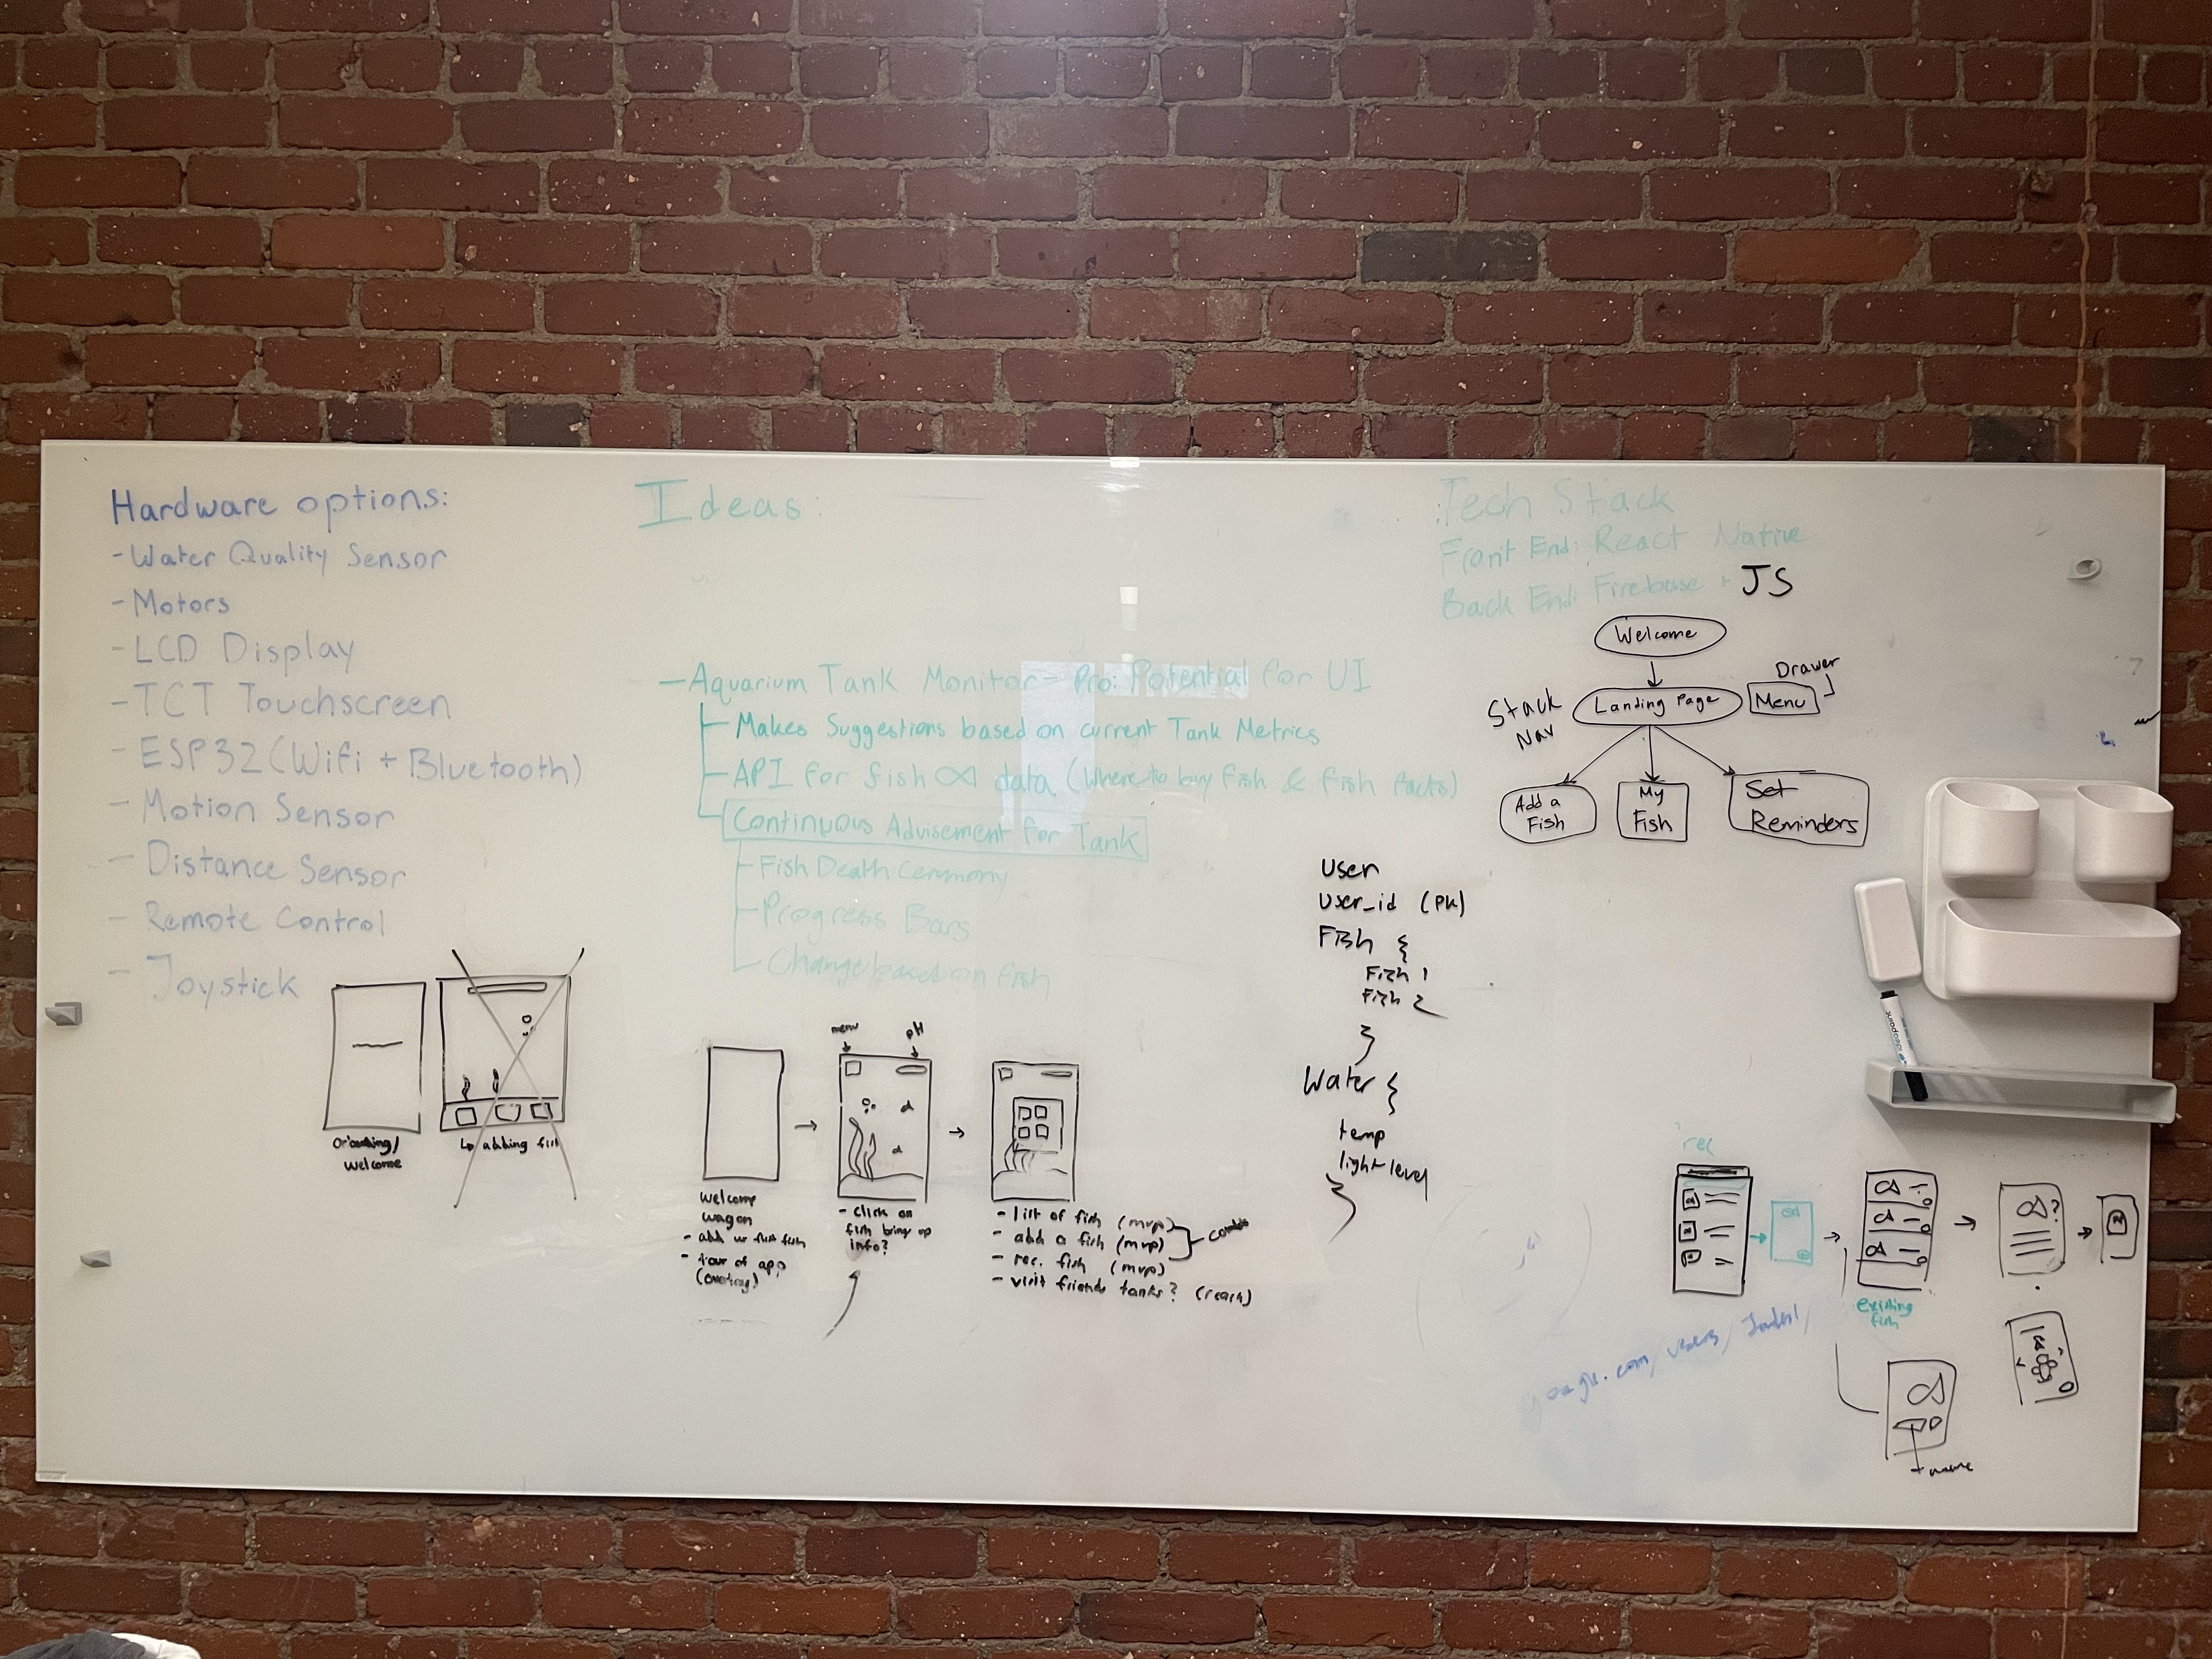 Hardware options:
- Water Quality Sensor
- Motors
- LCD Display
- TCT Touchscreen
- ESP32 (Wifi + Bluetooth)
- Motion Sensor
- Distance Sensor
- Remote Control
- Joystick
welcome
↳ adding fish
Ideas:
- Aquarium Tank Monitor - Pro: Potential for UI
Makes Suggestions based on current Tank Metrics
API for fish data (Where to buy fish & fish facts)
Continuous Advisement for Tank
Fish Death Ceremony
Progress Bars
Change based on fish
menu
pH
welcome
wagon
- add ur first fish
- tour of app
(overlay)
- click on
fish bring up
info?
- list of fish (mvp)
- add a fish (mvp)
- rec. fish (mvp)
- visit friends tanks? (reach)
combo
Tech Stack
Front End: React Native
Back End: Firebase + JS
Welcome
Drawer
Stack
Nav
Landing Page
Menu
Add a
Fish
My
Fish
Set
Reminders
User
User_id (PK)
Fish {
Fish 1
Fish 2
}
Water {
temp
light level
}
rec
existing
fish
?
name